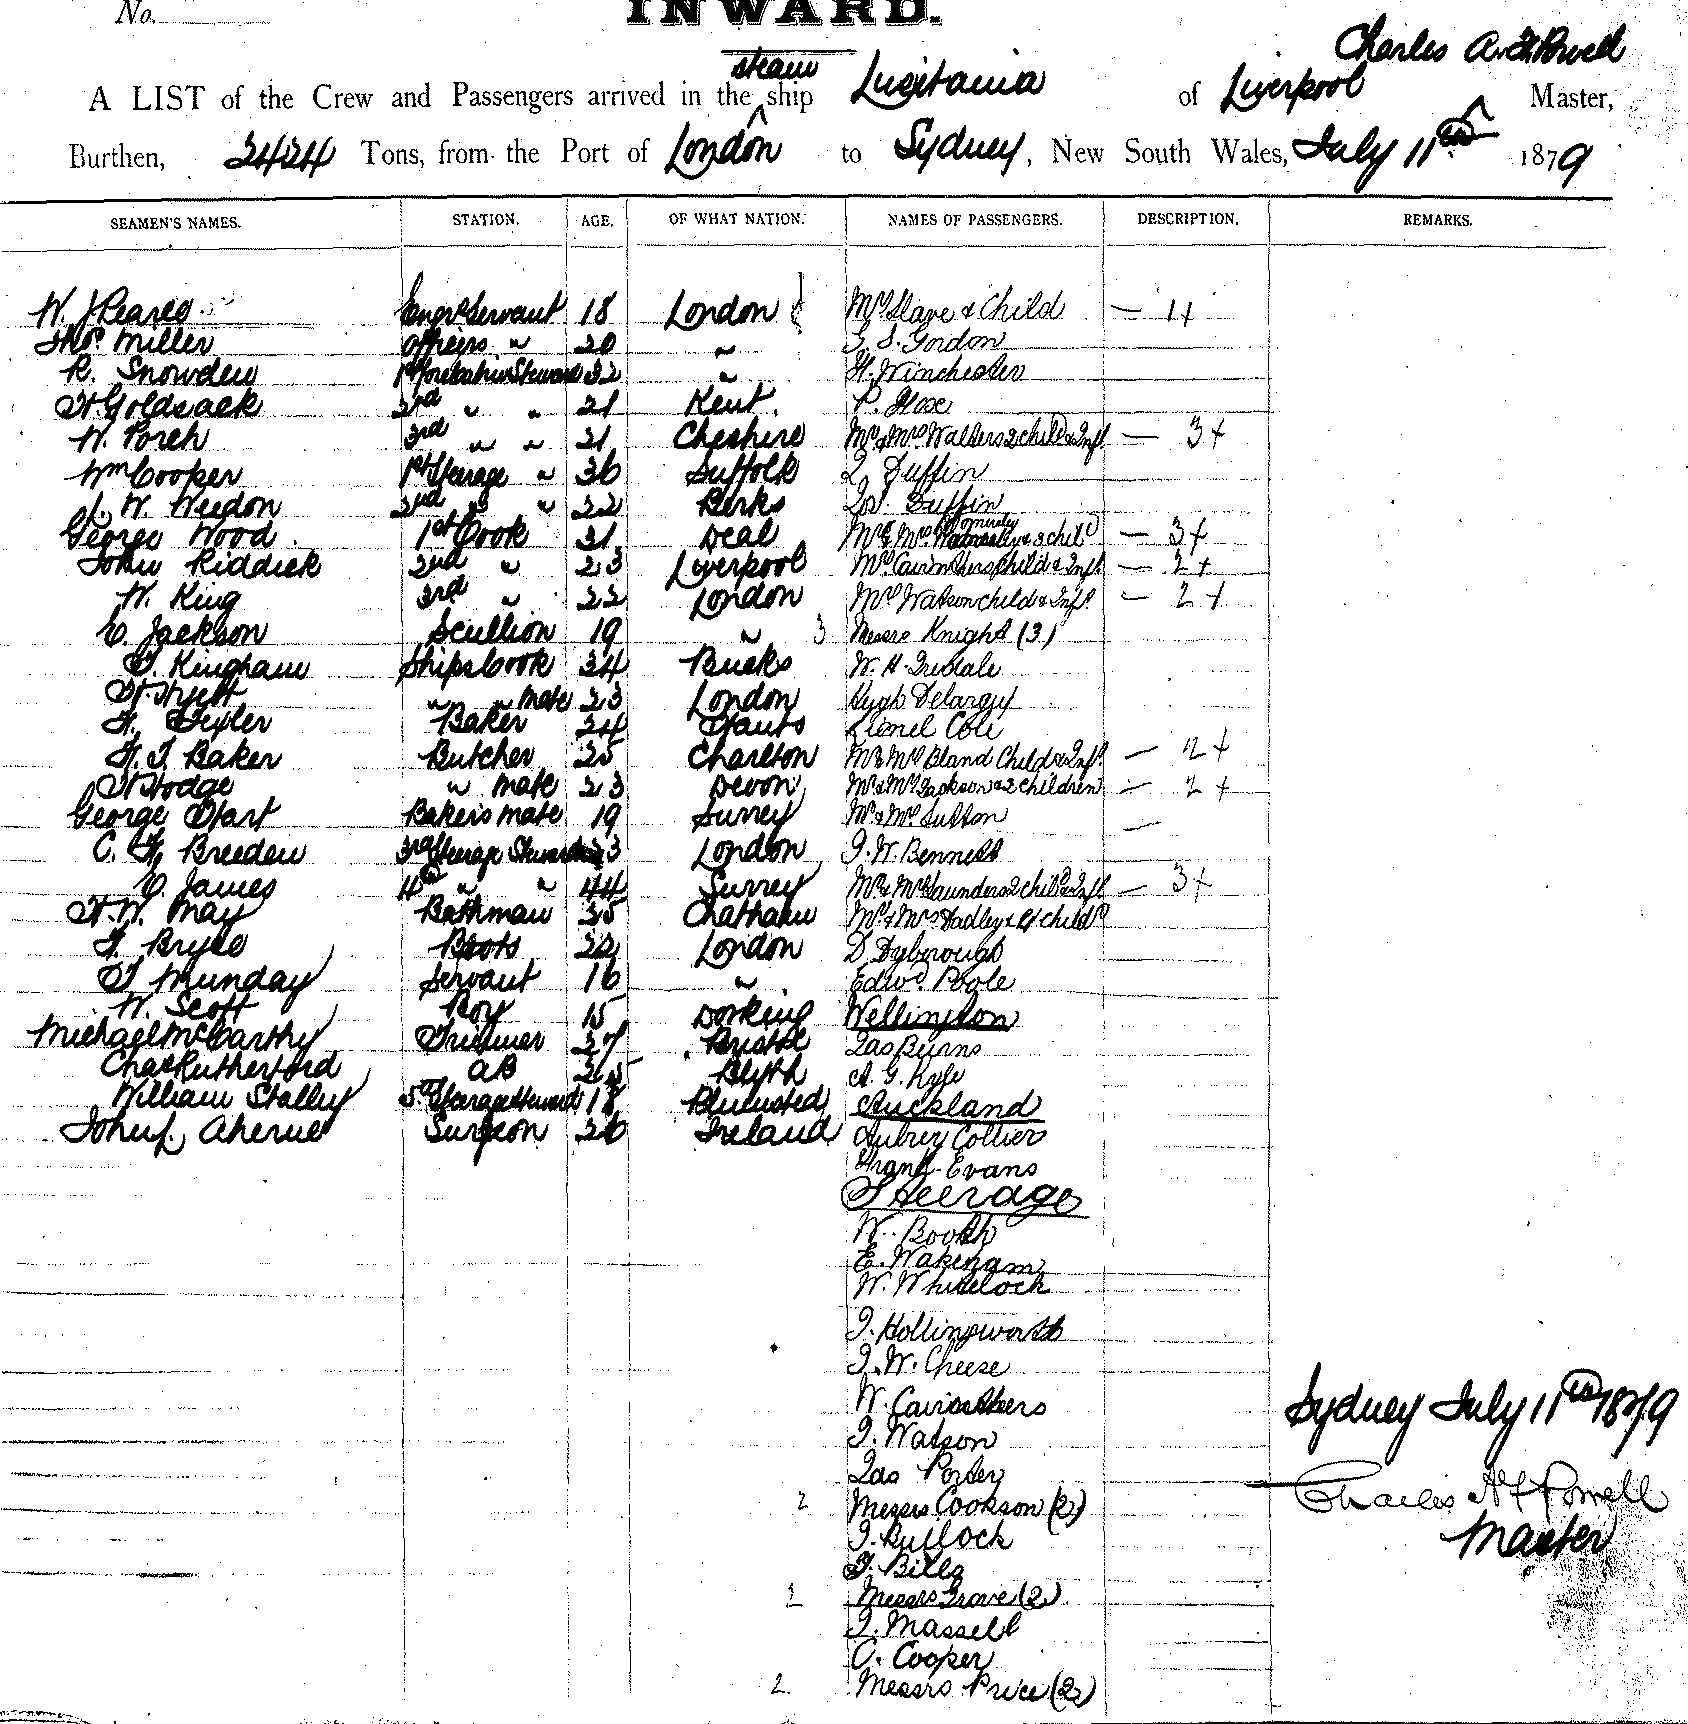 No.
INWARD.
Charles A. W. Powell
steam
A LIST of the Crew and Passengers arrived in the ship Lusitania of Liverpool Master,
Burthen, 2424 Tons, from the Port of London to Sydney, New South Wales, July 11th 1879
SEAMEN'S NAMES. STATION. AGE. OF WHAT NATION. NAMES OF PASSENGERS. DESCRIPTION. REMARKS.
W. J. Pearce Engrs Servant 18 London Mrs Slave & Child — 1+
Thos. Miller Officers " 20 " G. S. Gordon
R. Snowden 1st Forecabin Steward 32 " H. Winchester
H Goldsack 2nd " " 21 Kent. P.
W. Porch 3rd " " 21 Cheshire Mr & Mrs Walters 2 child & Inft — 3+
Wm Cooper 1st Steerage " 36 Suffolk J. Duffin
J. W. Weedon 2nd " " 22 Berks Jos. Duffin
George Wood 1st Cook 31 Deal Mr & Mrs & 3 child — 3+
John Riddick 2nd " 23 Liverpool Mrs Cairnthers child & Inft — 2+
W. King 3rd " 22 London Mrs Watson child & Inft. — 2+
C. Jackson Scullion 19 " 3 Messrs Knight (3)
T. Kingham Ships Cook 34 Bucks W. H. Tredale
H Hyett " " mate 23 London Hugh Delargy
F. Texler Baker 24 Hants Lionel Cole
H. J. Baker Butcher 25 Charlton Mr & Mrs Bland Child & Inft. — 2+
H Hodge " mate 23 Devon Mr & Mrs Jackson & 2 children — 2+
George Hart Bakers mate 19 Surrey Mr & Mrs Sutton —
C. H. Breeden 3rd Steerage Steward 33 London J. W. Bennett
C. James 4th " " 44 Surrey Mr & Mrs Saunders 2 child & Inft — 3+
H. W. May Bathman 35 Chatham Mr & Mrs Hadley & 4 child
F. Bryce Boots 22 London D. Dyborough
T Munday Servant 16 " Edwd. Poole
W. Scott Boy 15 Dorking Wellington
Michael McCarthy Trimmer 27 Bristol Jas Burns
Chas Rutherford AB 25 Blyth A. G. Kyle
William Stalley 5th Steerage Steward 18 Plumsted Auckland
John J. Aherne Surgeon 26 Ireland Aubrey Collier
Frank Evans
Steerage
W. Booth
E. Wakeham
W. Whitelock
J. Hollingworth
J. W. Cheese
W. Cairnthers
Sydney July 11th 1879
J. Watson
Jas Porter
Charles A W Powell
2 Messrs Cookson (2)
J. Bullock
Master
J. Bills
2 Messrs Grove (2)
J. Massell
C. Cooper
2 Messrs Price (2)